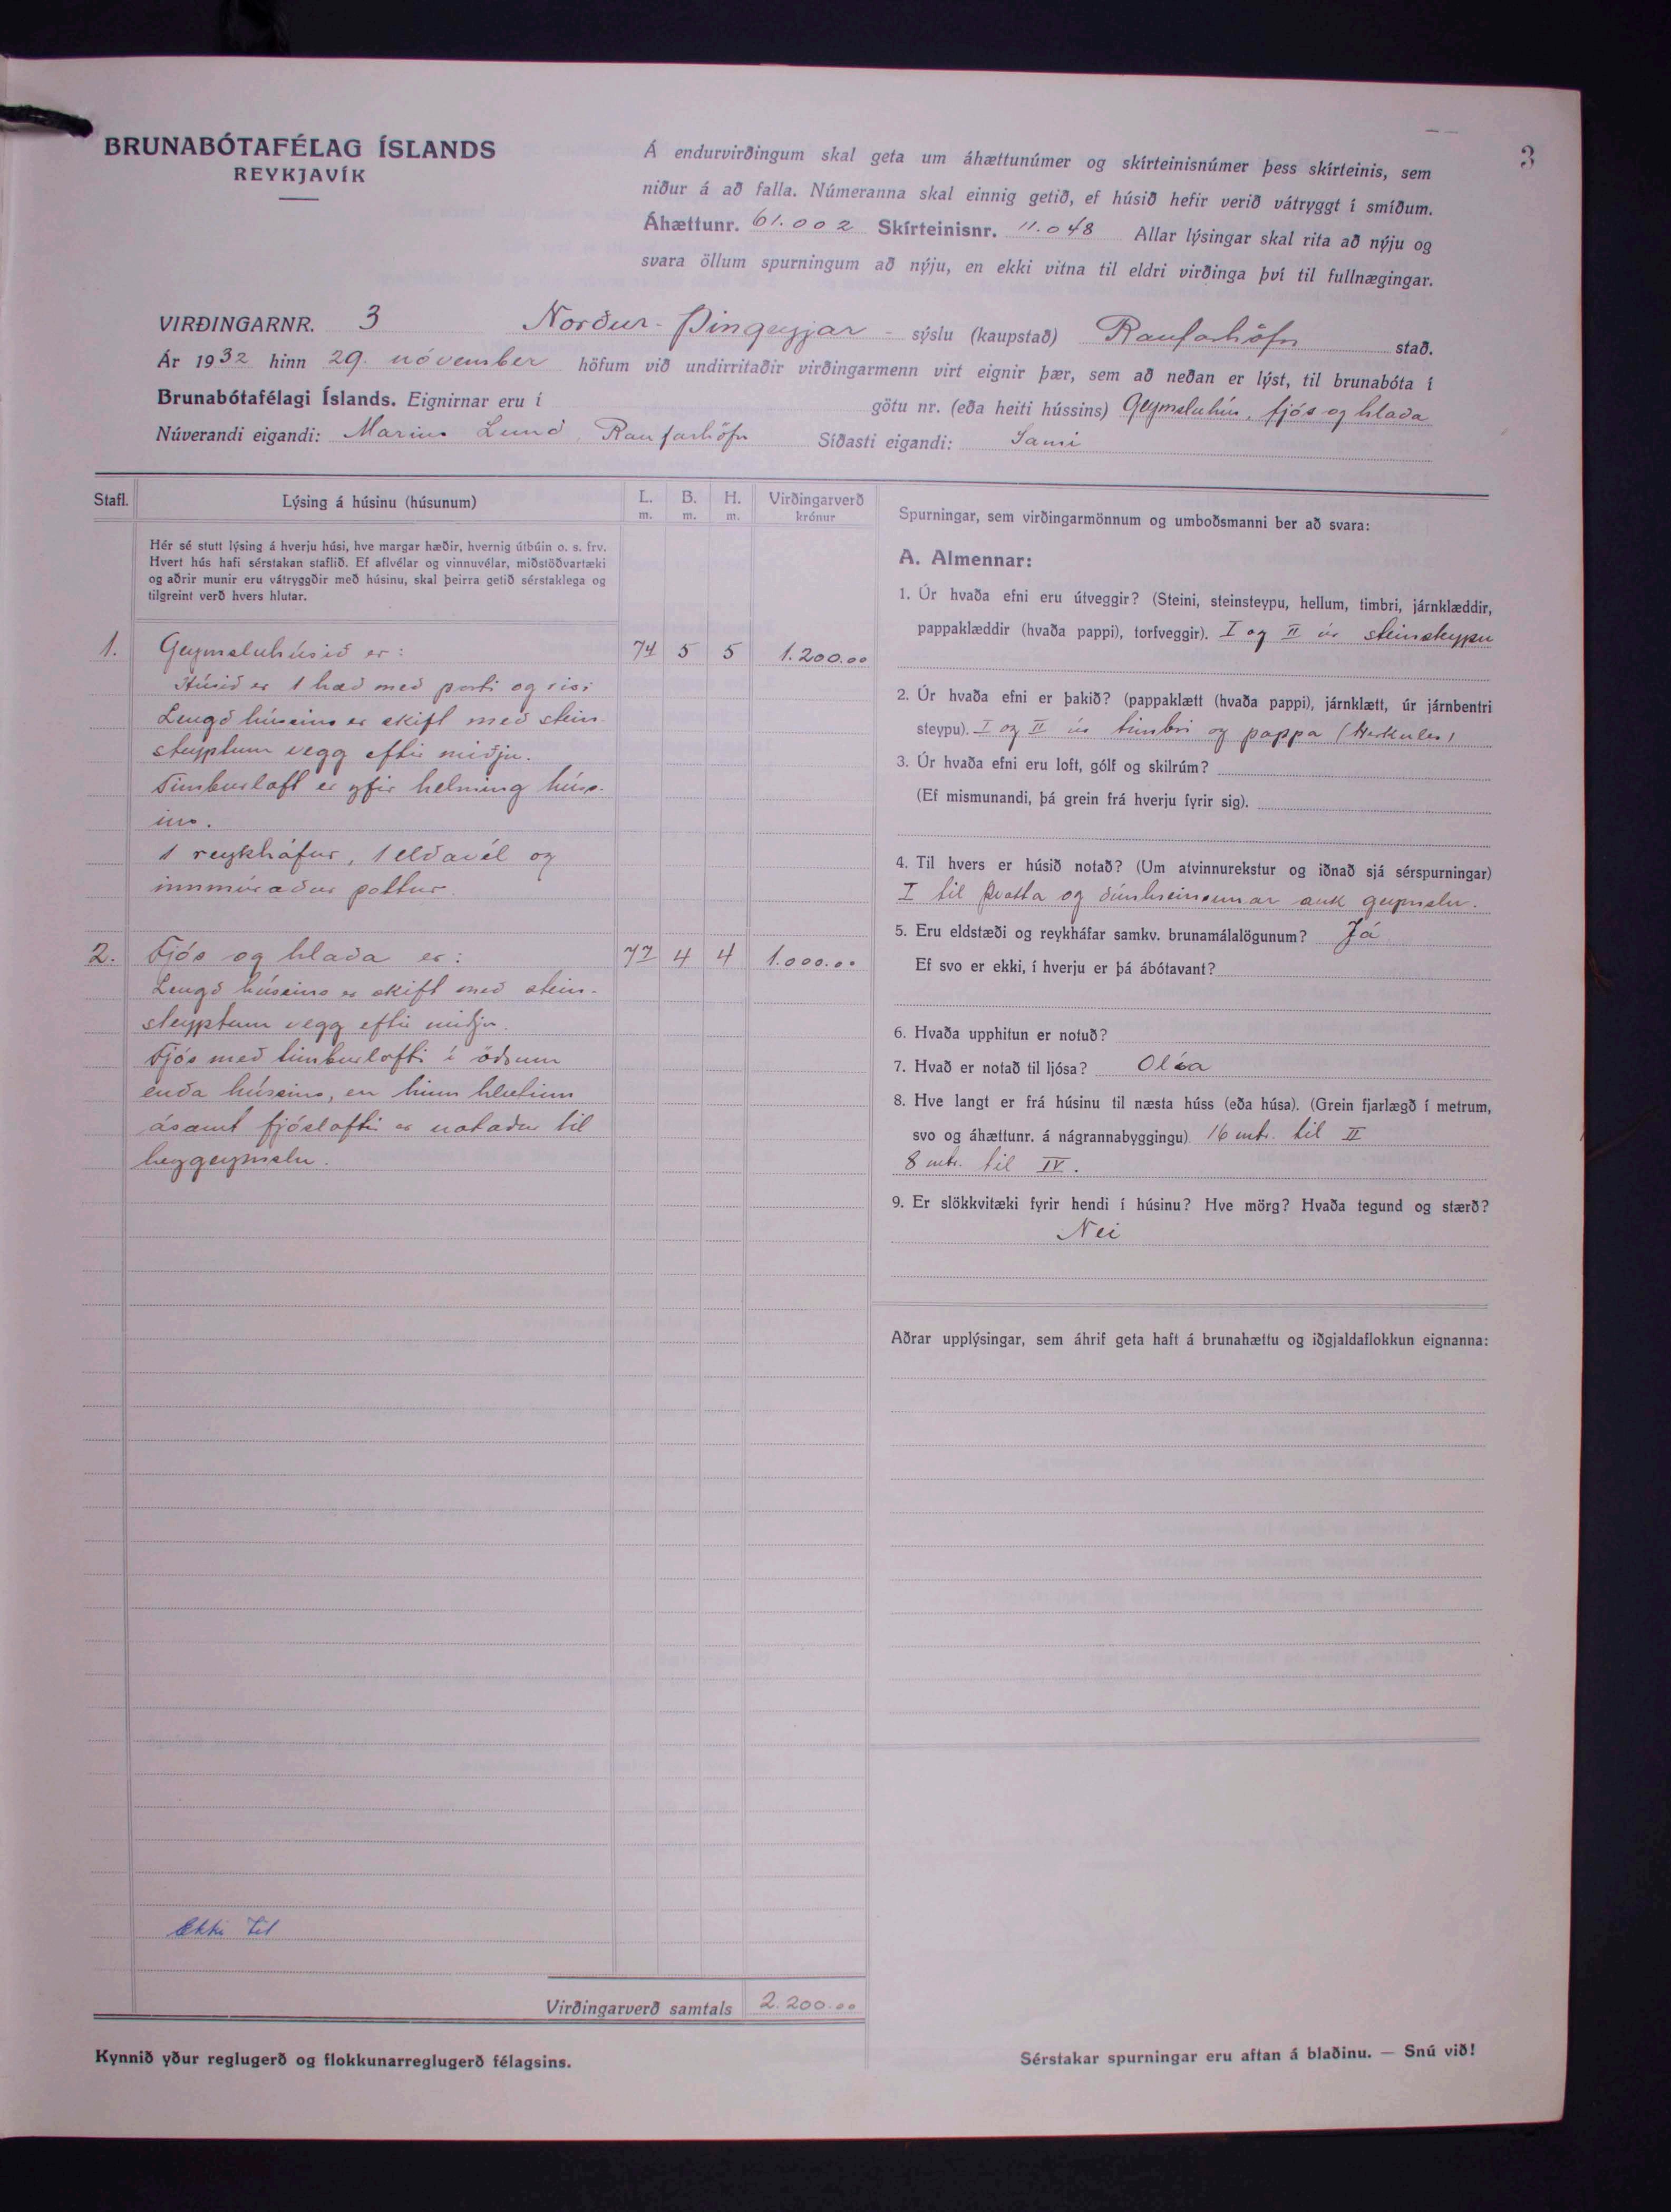 3
BRUNABÓTAFÉLAG ÍSLANDS
REYKJAVÍK
Á endurvirðingum skal geta um áhættunúmer og skírteinisnúmer þess skírteinis, sem
niður á að falla. Númeranna skal einnig getið, ef húsið hefir verið vátryggt í smíðum.
Áhættunr. 61.002 Skírteinisnr. 11.048 Allar lýsingar skal rita að nýju og
svara öllum spurningum að nýju, en ekki vitna til eldri virðinga því til fullnægingar.
VIRÐINGARNR. 3 Norður-Þingeyjar - sýslu (kaupstað) Raufarhöfn stað.
Ár 1932 hinn 29. nóvember höfum við undirritaðir virðingarmenn virt eignir þær, sem að neðan er lýst, til brunabóta í
Brunabótafélagi Íslands. Eignirnar eru í götu nr. (eða heiti hússins) Geymsluhús, fjós og hlaða
Núverandi eigandi: Marius Lund, Raufarhöfn Síðasti eigandi: Sami
Stafl. Lýsing á húsinu (húsunum) L. m. B. m. H. m. Virðingarverð krónur
Hér sé stutt lýsing á hverju húsi, hve margar hæðir, hvernig útbúin o. s. frv.
Hvert hús hafi sérstakan staflið. Ef aflvélar og vinnuvélar, miðstöðvartæki
og aðrir munir eru vátryggðir með húsinu, skal þeirra getið sérstaklega og
tilgreint verð hvers hlutar.
1. Geymsluhúsið er: 74 5 5 1.200.00
Húsið er 1 hæð með porti og risi
Lengd hússins er skift með stein-
steyptum vegg eftir miðju.
Timburloft er yfir helming húss-
ins.
1 reykháfur, 1 eldavél og
innmúraður pottur.
2. Fjós og hlaða er: 77 4 4 1.000.00
Lengd hússins er skift með stein-
steyptum vegg eftir miðju.
Fjós með timburlofti í öðrum
enda hússins, en hinn hlutinn
ásamt fjóslofti er notaður til
heygeymslu.
Ekki til
Virðingarverð samtals 2.200.00
Kynnið yður reglugerð og flokkunarreglugerð félagsins.
Spurningar, sem virðingarmönnum og umboðsmanni ber að svara:
A. Almennar:
1. Úr hvaða efni eru útveggir? (Steini, steinsteypu, hellum, timbri, járnklæddir,
pappaklæddir (hvaða pappi), torfveggir). I og II úr steinsteypu
2. Úr hvaða efni er þakið? (pappaklætt (hvaða pappi), járnklætt, úr járnbentri
steypu). I og II úr timbri og pappa (Herkules)
3. Úr hvaða efni eru loft, gólf og skilrúm?
(Ef mismunandi, þá grein frá hverju fyrir sig).
4. Til hvers er húsið notað? (Um atvinnurekstur og iðnað sjá sérspurningar)
I til þvotta og dúnhreinsunar auk geymslu.
5. Eru eldstæði og reykháfar samkv. brunamálalögunum? Já
Ef svo er ekki, í hverju er þá ábótavant?
6. Hvaða upphitun er notuð?
7. Hvað er notað til ljósa? Olía
8. Hve langt er frá húsinu til næsta húss (eða húsa). (Grein fjarlægð í metrum,
svo og áhættunr. á nágrannabyggingu) 16 mtr. til II
8 mtr. til IV.
9. Er slökkvitæki fyrir hendi í húsinu? Hve mörg? Hvaða tegund og stærð?
Nei
Aðrar upplýsingar, sem áhrif geta haft á brunahættu og iðgjaldaflokkun eignanna:
Sérstakar spurningar eru aftan á blaðinu. — Snú við!